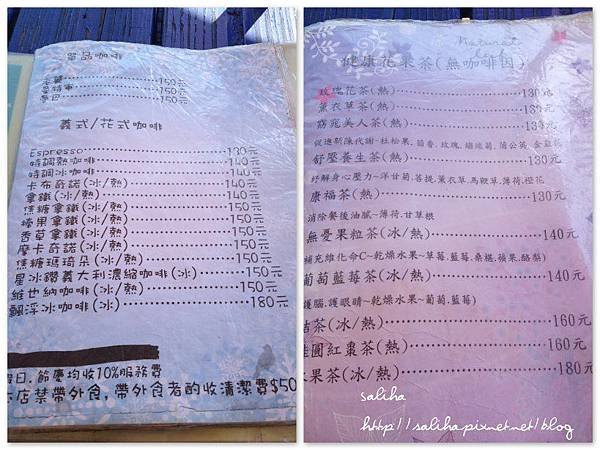 單品咖啡
150元
曼特寧 150元
150元
義式/花式咖啡
Espresso 130元
特調熱咖啡 140元
特調冰咖啡 140元
卡布奇諾(冰/熱) 140元
拿鐵(冰/熱) 140元
焦糖拿鐵(冰/熱) 150元
榛果拿鐵(冰/熱) 150元
香草拿鐵(冰/熱) 150元
摩卡奇諾(冰/熱) 150元
焦糖瑪琦朵(冰/熱) 150元
星冰鑽義大利濃縮咖啡(冰) 150元
維也納咖啡(冰/熱) 150元
飄浮冰咖啡(冰) 180元
假日.節慶均收10%服務費
本店禁帶外食,帶外食者酌收清潔費$50
Natural
健康花果茶(無咖啡因)
玫瑰花茶(熱) 130元
薰衣草茶(熱) 130元
窈窕美人茶(熱) 130元
促進新陳代謝~杜松果.茴香.玫瑰.蒲公英.
舒壓養生茶(熱) 130元
紓解身心壓力~洋甘菊.菩提.薰衣草.馬鞭草.薄荷.橙花
康福茶(熱) 130元
消除餐後油膩~薄荷.甘草根
無憂果粒茶(冰/熱) 140元
補充維他命C~乾燥水果~草莓.藍莓.桑椹.蘋果.酪梨
葡萄藍莓茶(冰/熱) 140元
護腦.護眼睛~乾燥水果~葡萄.藍莓)
桔茶(冰/熱) 160元
桂圓紅棗茶(熱) 160元
水果茶(冰/熱) 180元
saliha
http://saliha.pixnet.net/blog